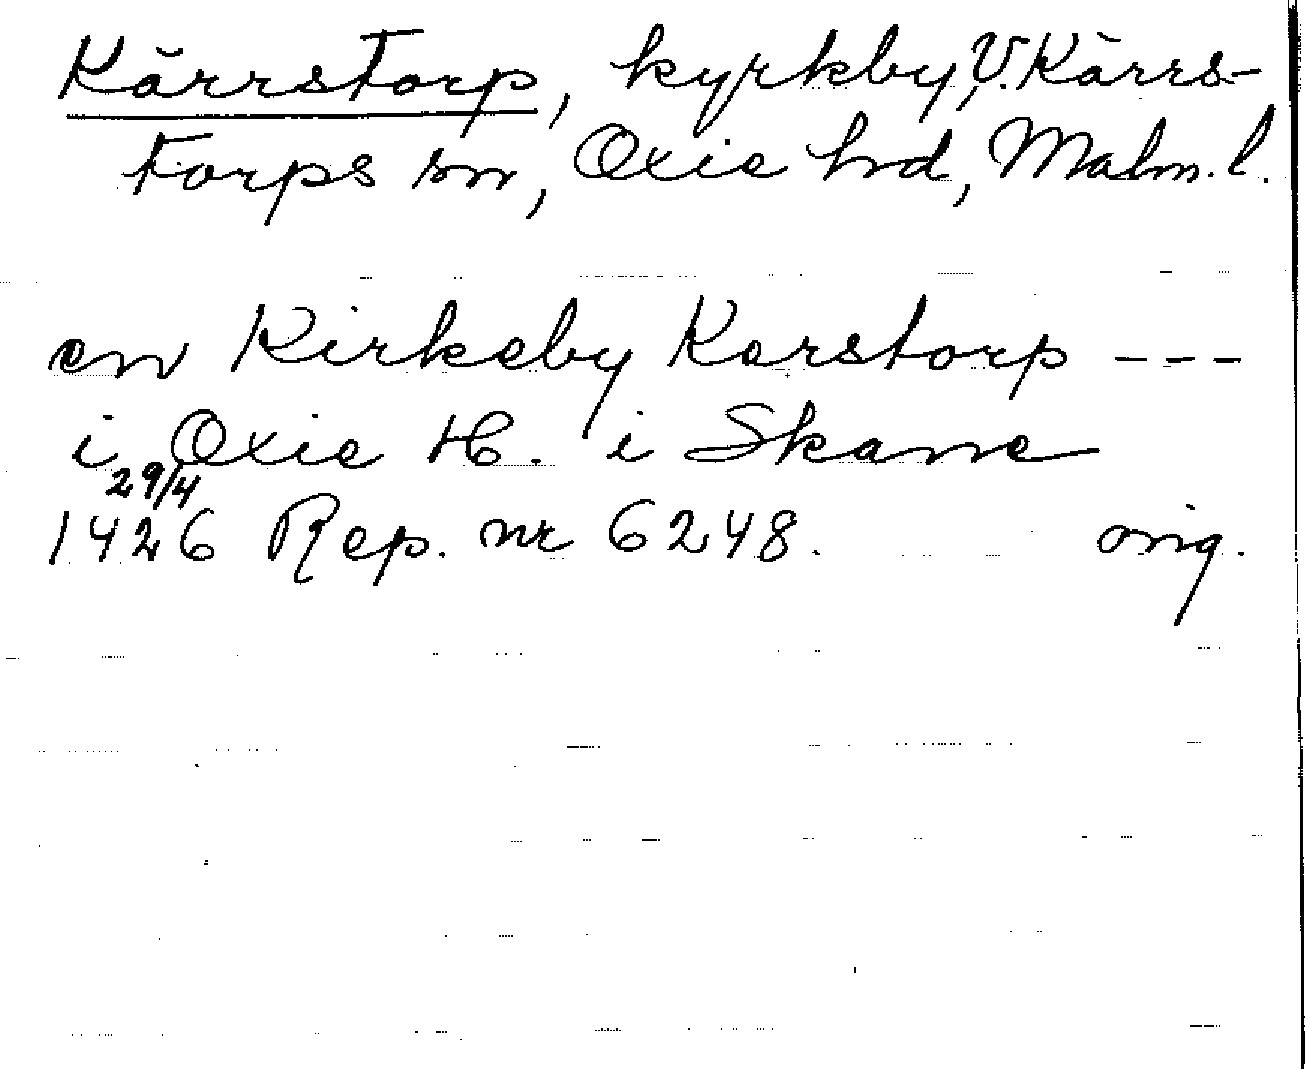 Kärrstorp, kyrkby, V. Kärrs-
torps sn, Oxie hd, Malm. l.
en Kirkeby Kerstorp ---
i Oxie H. i Skane
29/4
1426 Rep. nr 6248. orig.